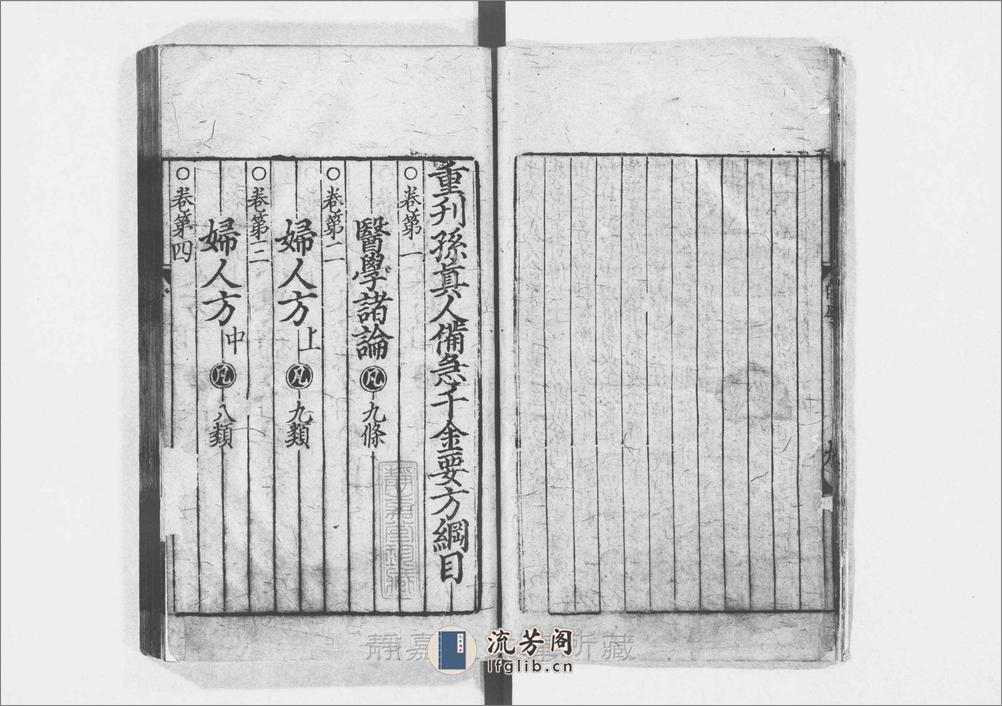 重刋孫真人備急千金要方綱目
○卷第一
醫學諸論 凡 九條
○卷第二
婦人方上 凡 九類
○卷第三
婦人方中 凡 八類
○卷第四
靜嘉堂珍藏
靜嘉 所藏
流芳阁
lfglib.cn